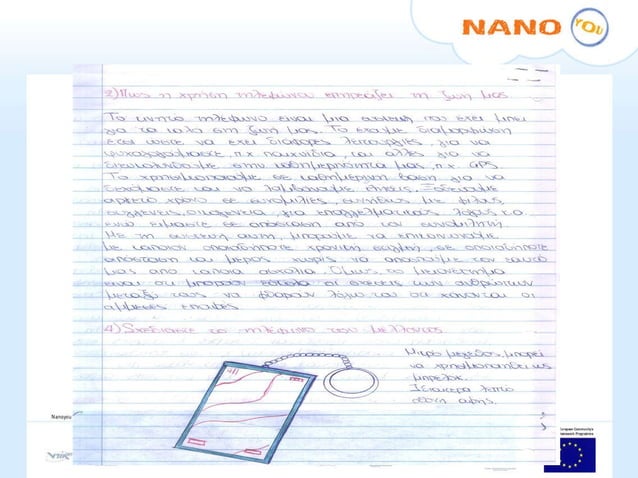 NANO YOU
3) Πως η χρήση τηλεφώνου επηρεάζει τη ζωή μας
Το κινητό τηλέφωνο είναι μια συσκευή που έχει μπει
για τα καλά στη ζωή μας. Το έχουμε διαμορφώσει
έτσι ώστε να έχει διάφορες λειτουργίες, για να
π.χ παιχνίδια, και άλλες για να
στην καθημερινότητα μας, π.χ. GPS
Το χρησιμοποιούμε σε καθημερινή βάση για να
και να λαμβάνουμε κλήσεις. Ξοδεύουμε
αρκετό χρόνο σε συνομιλίες, συνήθως με φίλους,
συγγενείς, οικογένεια, για επαγγελματικούς λόγους κ.α.
ενώ είμαστε σε απόσταση από τον συνομιλητή.
Με τη συσκευή αυτή, μπορούμε να επικοινωνούμε
με κάποιον οποιαδήποτε χρονική στιγμή, σε οποιαδήποτε
απόσταση και μέρος χωρίς να τον εαυτό
μας από κάποια ασχολία. Όμως, το μειονέκτημα
είναι ότι μπορούν εύκολα οι σχέσεις των ανθρώπων
μεταξύ τους να φθαρούν λόγω του ότι χάνονται οι
άμεσες επαφές.
4) Σχεδιάστε το τηλέφωνο του μέλλοντος.
Μικρό μέγεθος, μπορεί
να χρησιμοποιηθεί ως
μπρελόκ.
Ιδιαίτερα λεπτό
οθόνη αφής.
Nanoyou